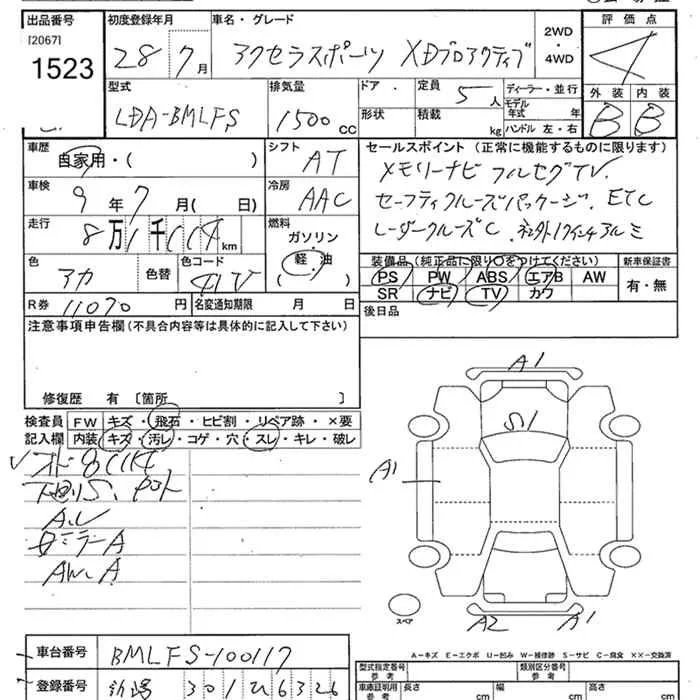 出品番号
[2067]
1523
初度登録年月
28年7月
車名・グレード
アクセラスポーツ XDプロアクティブ
2WD
・
4WD
評価点
4
外装 内装
B B
型式
LDA-BMLFS
排気量
1500 cc
ドア ・
形状
定員 5 人
積載 kg
ディーラー・並行
モデル年式 年
ハンドル 左・右
車歴
自家用・( )
シフト
AT
車検
9年7月( 日)
冷房
AAC
走行
8万1千114km
燃料
ガソリン
軽・油
( )
色
アカ
色替
色コード
41V
R券 11070 円
名変通知期限 月 日
セールスポイント (正常に機能するものに限ります)
メモリーナビ フルセグTV.
セーフティクルーズパッケージ. ETC
レーダークルーズC. 社外17インチアルミ
装備品(純正品に限り○をつけてください)
PS PW ABS エアB AW
SR ナビ TV カワ
新車保証書
有・無
後日品
注意事項申告欄(不具合内容等は具体的に記入して下さい)
修復歴 有 〔箇所
検査員記入欄
FW キズ・飛石・ヒビ割・リペア跡・×要
内装 キズ・汚レ・コゲ・穴・スレ・キレ・破レ
A.U
ミラーA
AW.A
A1
S1
A1
A2 A1
スペア
A－キズ E－エクボ U－凹み W－補修跡 S－サビ C－腐食 ××－交換済
車台番号
BMLFS-100117
登録番号
新潟 301 ひ 6326
型式指定番号
参考
類別区分番号
参考
車庫証明用
参考
長さ cm
幅 cm
高さ cm